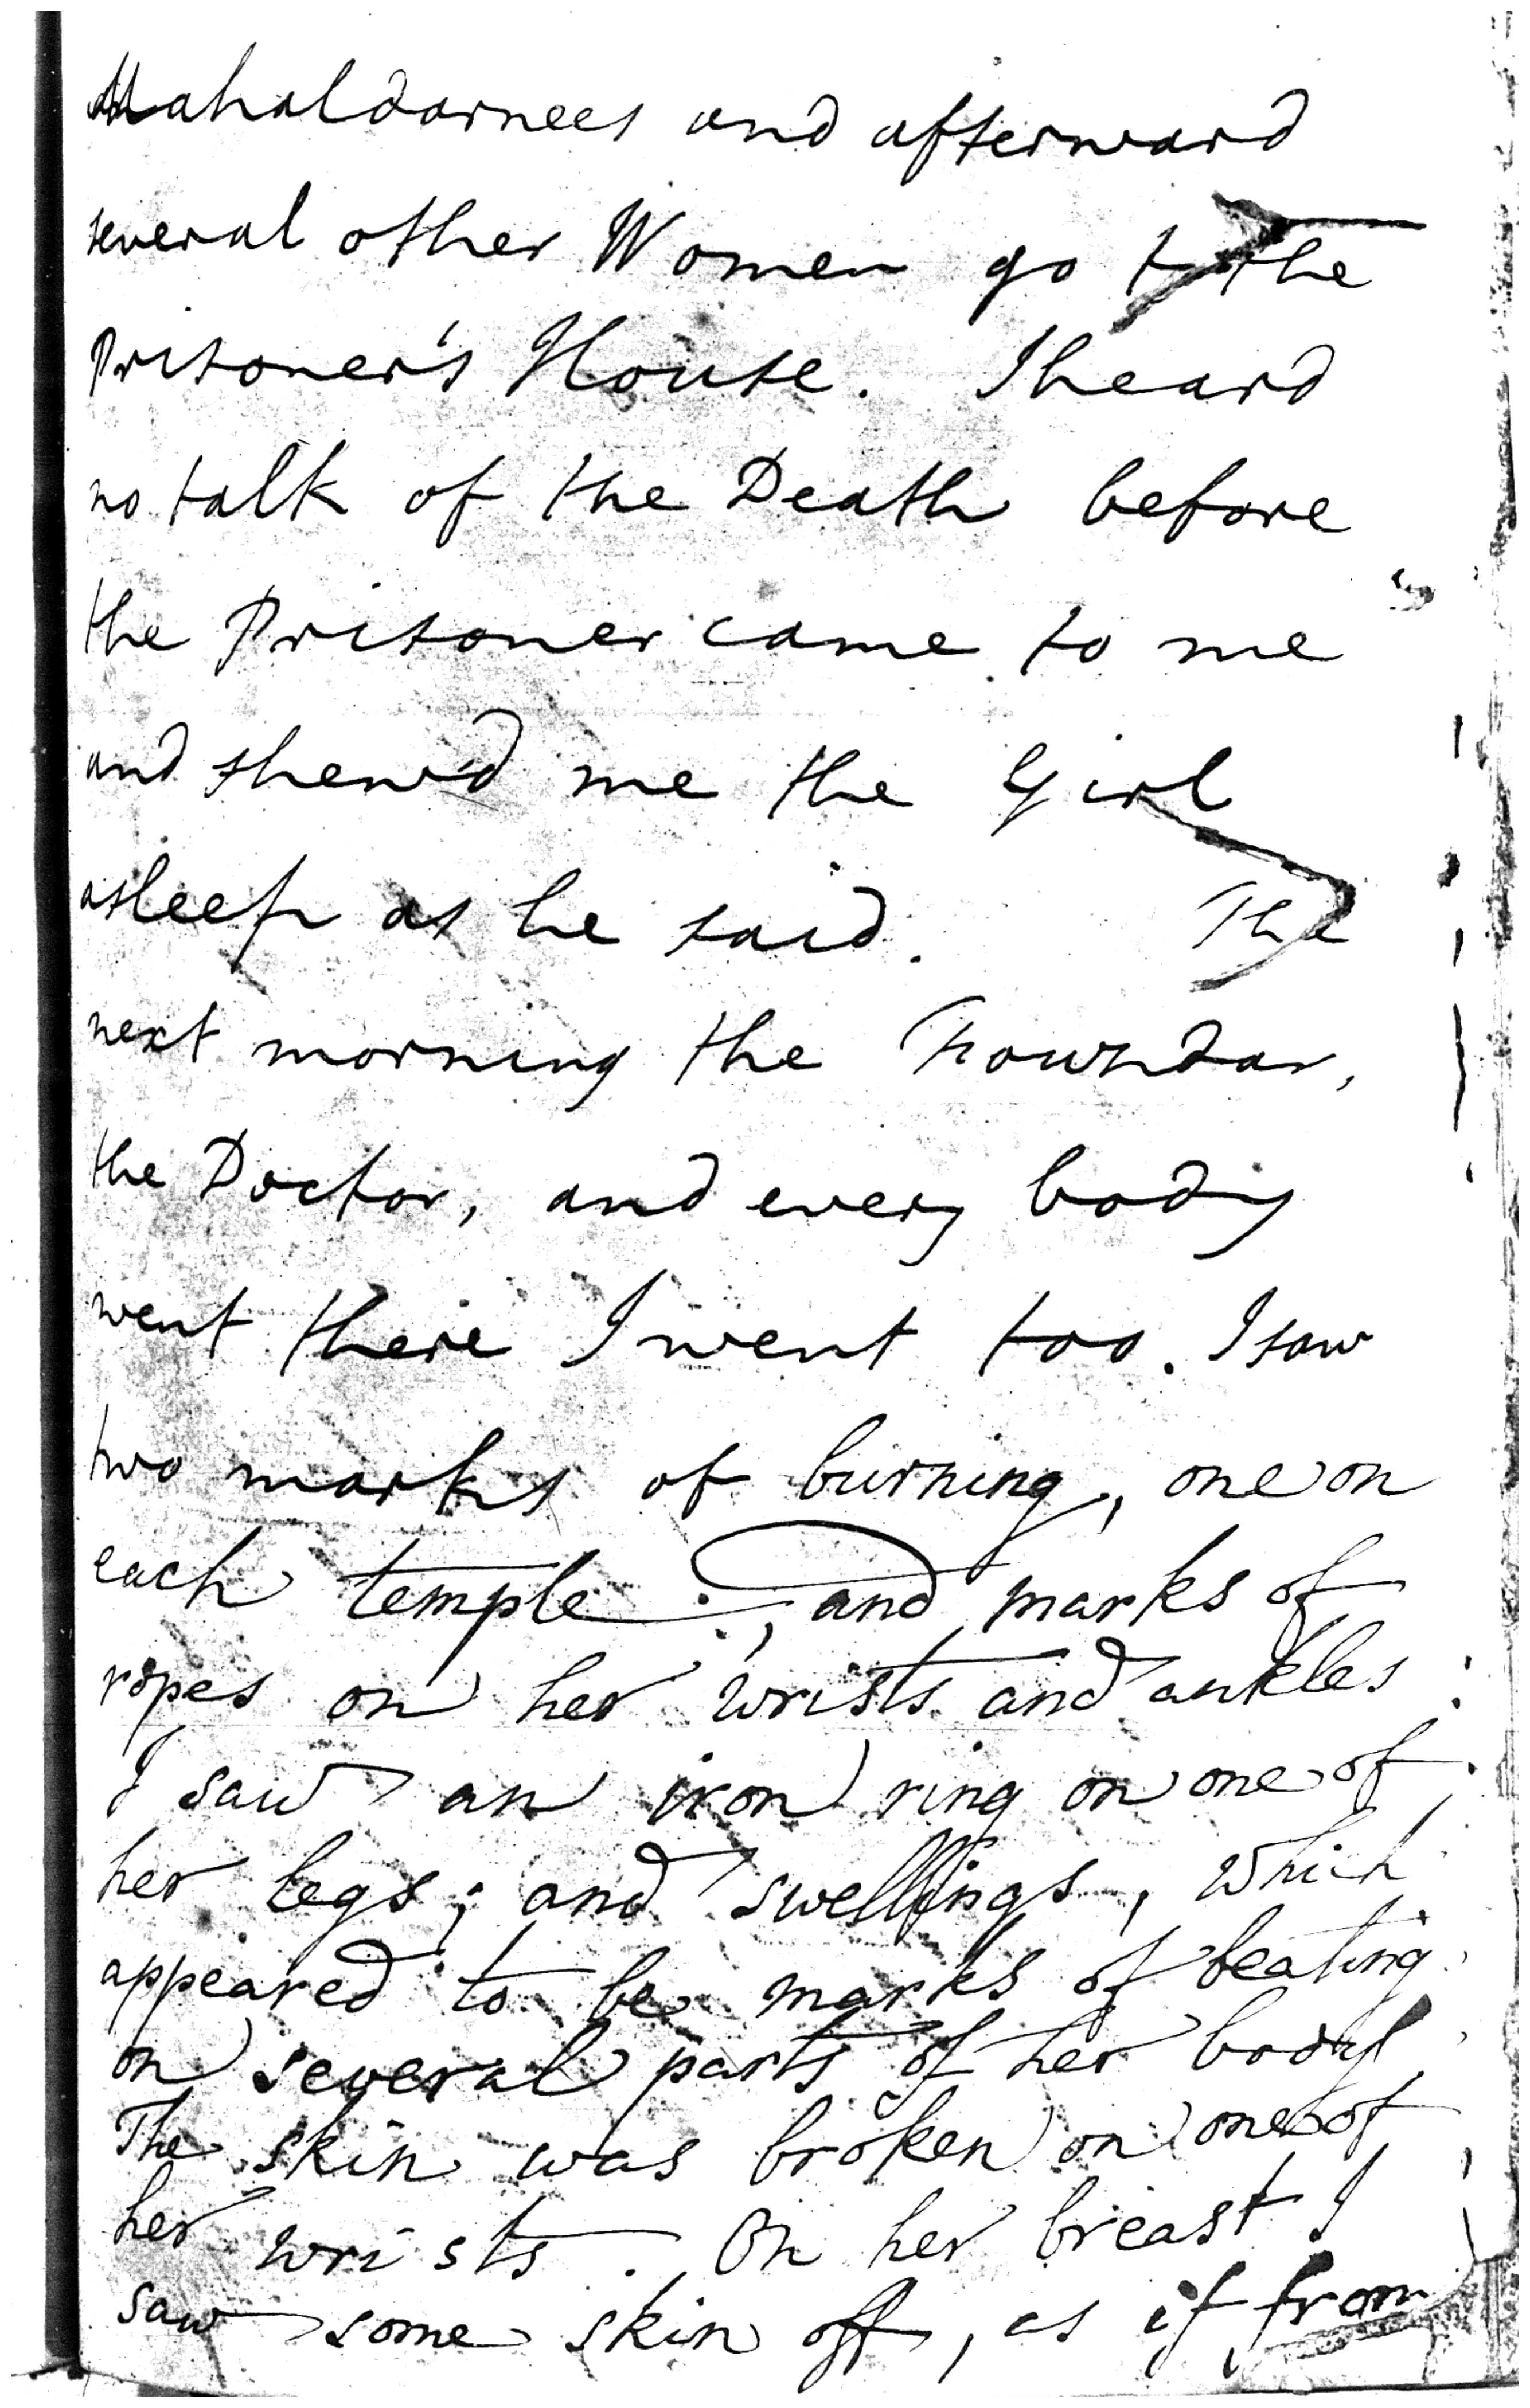 Mahaldarnees and afterward
several other Women go to the
Prisoner's House. I heard
no talk of the Death before
the Prisoner came to me
and shew'd me the Girl
asleep as he said. The
next morning the
the Doctor, and every body
went there I went too. I saw
two marks of burning, one on
each temple; and marks of
ropes on her wrists and ankles:
I saw an iron ring on one of
her legs; and swellings, which
appeared to be marks of beating
on several parts of her body.
The skin was broken on one of
her wrists. On her breast I
saw some skin off, as if from